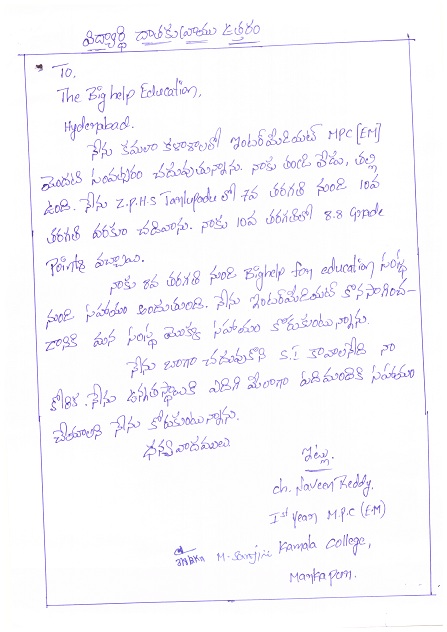 విద్యార్థి దాతకు వ్రాయు ఉత్తరం
To.
The Big help Education,
Hyderabad.
నేను కమలా కళాశాలలో ఇంటర్‌మీడియట్ MPC [EM]
మొదటి సంవత్సరం చదువుతున్నాను. నాకు తండ్రి లేడు, తల్లి
ఉంది. నేను Z.P.H.S Tanlupadu లో 7వ తరగతి నుండి 10వ
తరగతి వరకూ చదివాను. నాకు 10వ తరగతిలో 8.8 Grade
Points వచ్చాయి.
నాకు 8వ తరగతి నుండి Bighelp for education సంస్థ
నుండి సహాయం అందుతుంది. నేను ఇంటర్‌మీడియట్ కొనసాగించ-
డానికి మన సంస్థ యొక్క సహాయం కోరుకుంటున్నాను.
నేను బాగా చదువుకొని S.I కావాలనేది నా
కోరిక. నేను ఉన్నతస్థాయికి ఎదిగి మీలాగా పదిమందికి సహాయం
చేయాలని నేను కోరుకుంటున్నాను.
ధన్యవాదములు
ఇట్లు.
ch. Naveen Reddy.
Ist year M.P.C (EM)
M. Sarojini Kamala College,
Markapur.